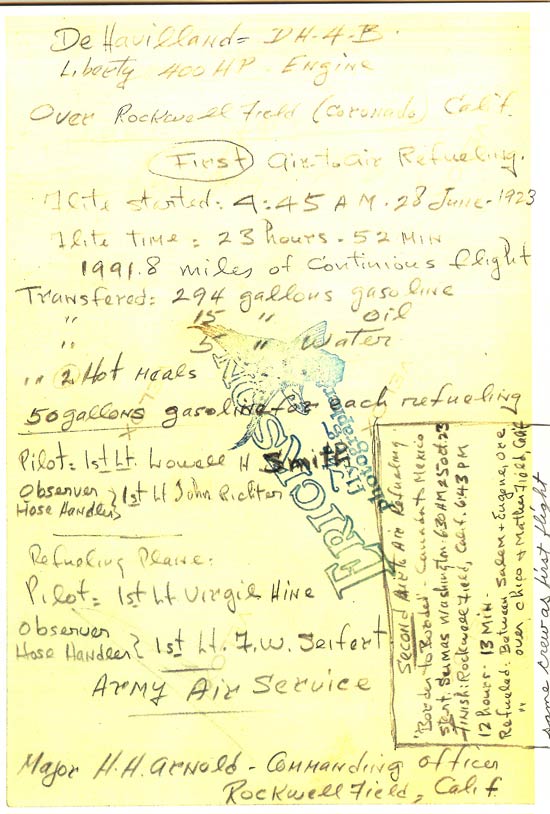 De Havilland = DH-4-B.
Liberty 400 HP - Engine
Over Rockwell Field (Coronado) Calif.
First Air to Air Refueling.
Flite started: 4:45 AM. 28 June - 1923
Flite time: 23 hours - 52 MIN
1991.8 miles of continious flight
Transfered: 294 gallons gasoline
" 15 " Oil
" 5 " Water
" 2 Hot Meals
50 gallons gasoline for each refueling
Pilot: 1st Lt. Lowell H Smith
Observer
Hose Handler } 1st Lt John Richter
Refueling Plane:
Pilot: 1st Lt Virgil Hine
Observer
Hose Handler } 1st Lt. F.W. Seifert
Army Air Service
Major H.H. Arnold - Commanding Officer
Rockwell Field, Calif.
Second Air to Air Refueling
"Border to Border" - Canada to Mexico
Start: Sumas Washington - 6:30 AM 25 Oct. 23
Finish: Rockwell Field, Calif. 6:43 PM
12 hours - 13 Min.
Refueled: Between Salem & Eugene, Ore
" over Chico & Mather Field, Calif
same crew as first flight
ERICKSON
Photographer